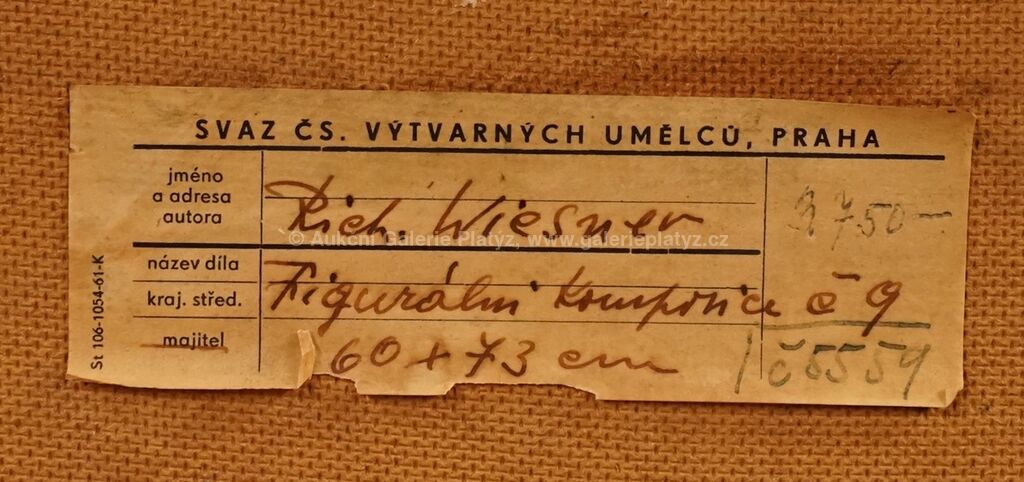 SVAZ ČS. VÝTVARNÝCH UMĚLCŮ, PRAHA
jméno
a adresa
autora
Rich. Wiesner
3750-
© Aukční Galerie Platýz, www.galerieplatyz.cz
název díla
kraj. střed.
Figurální komposice č 9
majitel
60 + 73 cm
č 5559
St 106-1054-61-K